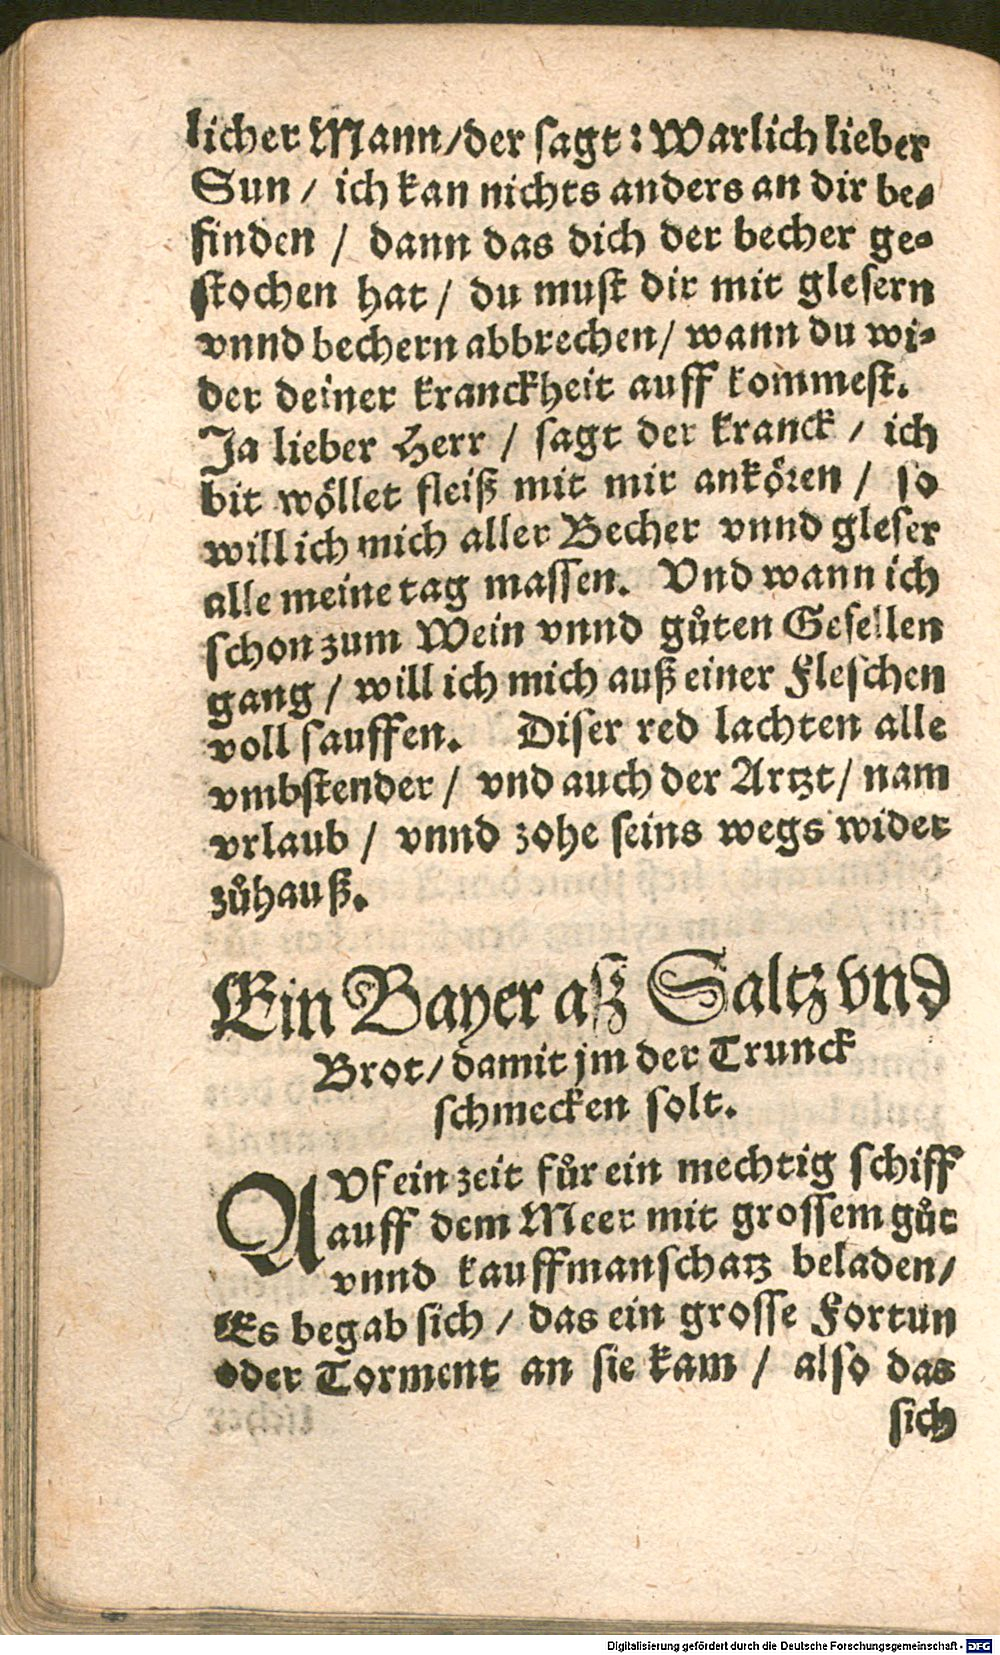 licher Mann/der sagt: Warlich lieber
Sun/ ich kan nichts anders an dir be⸗
finden / dann das dich der becher ge⸗
stochen hat/ du must dir mit glesern
vnnd bechern abbrechen/ wann du wi⸗
der deiner kranckheit auff kommest.
Ja lieber Herr / sagt der kranck / ich
bit wöllet fleiß mit mir ankören / so
will ich mich aller Becher vnnd gleser
alle meine tag massen. Vnd wann ich
schon zum Wein vnnd gůten Gesellen
gang / will ich mich auß einer Fleschen
voll sauffen. Diser red lachten alle
vmbstender / vnd auch der Artzt / nam
vrlaub / vnnd zohe seins wegs wider
zůhauß.
Ein Bayer aß Saltz vnd
Brot/ damit jm der Trunck
schmecken solt.
AVf ein zeit fůr ein mechtig schiff
auff dem Meer mit grossem gůt
vnnd kauffmanschatz beladen/
Es begab sich / das ein grosse Fortun
oder Torment an sie kam / also das
sich
Digitalisierung gefördert durch die Deutsche Forschungsgemeinschaft - DFG